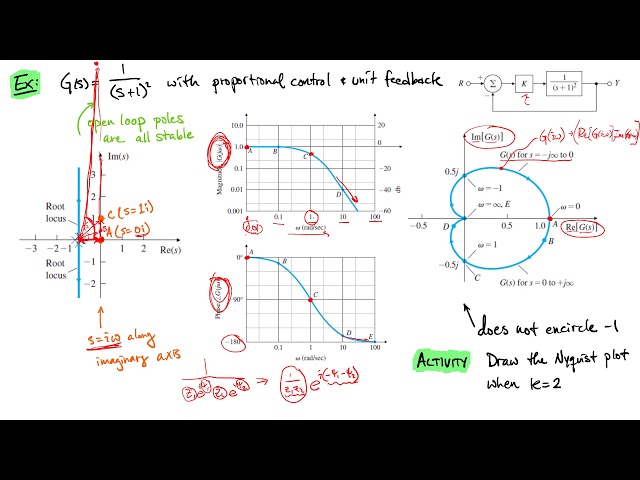 Ex: G(s) = 1/(s+1)² with proportional control & unit feedback
open loop poles
are all stable
R + Σ K 1/(s+1)² Y
−
Im(s)
3
2
1
Root
locus
C (s=1i)
A (s=0i)
−3 −2 −1 1 2 3 Re(s)
−1
−2
Root
locus
s=iω along
imaginary axis
Magnitude, |G(jω)|
10.0
1.0
0.1
0.01
0.001
20
0
−20
−40
−60
db
A B C D
0.01 0.1 1 10 100
ω (rad/sec)
Phase, ∠G(jω)
0°
90°
−180°
A B C D E
0.1 1.0 10 100
ω (rad/sec)
1/(z₁e^(iφ₁) z₂e^(iφ₂)) → 1/(z₁z₂) e^(i(−φ₁−φ₂))
Im[G(s)]
G(s) for s = −j∞ to 0
0.5j
ω = −1
ω = ∞, E
ω = 0
D 0.5 1.0 A
Re[G(s)]
ω = 1
B
−0.5j
C
G(s) for s = 0 to +j∞
does not encircle −1
ACTIVITY Draw the Nyquist plot
when k=2